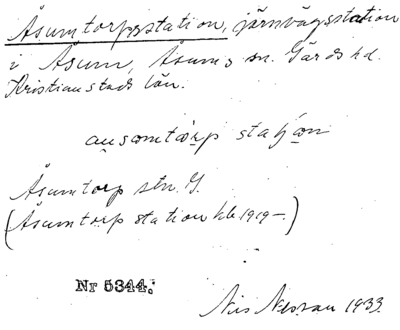 Åsumtorpsstation, järnvägsstation
i Åsum, Åsums sn. Gärds hd.
Kristianstads län.
au̯somtɷrp staʃɷn
Åsumtorp stn. G.
(Åsumtorp station kb 1919–.)
Nr 5344.
Nils 1933.